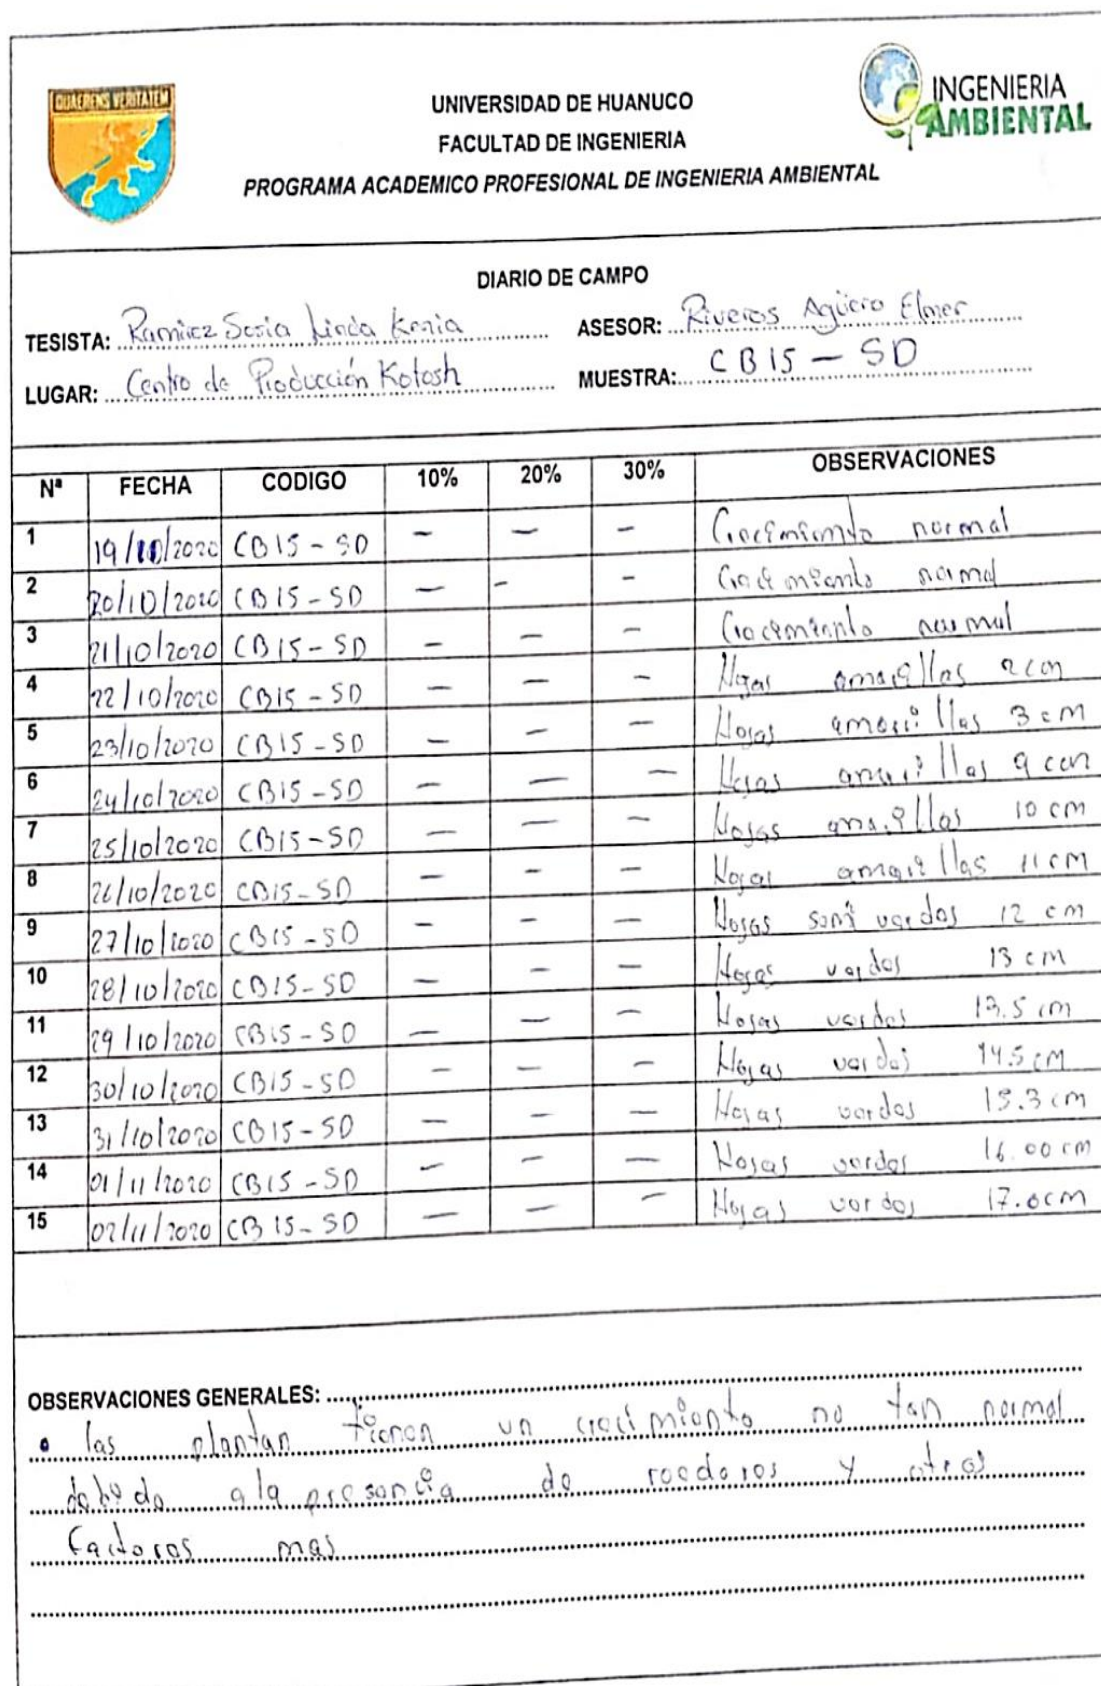 QUAERENS VERITATEM
INGENIERIA
AMBIENTAL
UNIVERSIDAD DE HUANUCO
FACULTAD DE INGENIERIA
PROGRAMA ACADEMICO PROFESIONAL DE INGENIERIA AMBIENTAL
DIARIO DE CAMPO
TESISTA: Ramirez Soria Linda Kenia ASESOR: Riveros Agüero Elmer
LUGAR: Centro de Producción Kotosh MUESTRA: CB15 - SD
Nª FECHA CODIGO 10% 20% 30% OBSERVACIONES
1 19/10/2020 CB15 - SD - - - Crecimiento normal
2 20/10/2020 CB15 - SD - - - Crecimiento normal
3 21/10/2020 CB15 - SD - - - Crecimiento normal
4 22/10/2020 CB15 - SD - - - Hojas amarillas 2 cm
5 23/10/2020 CB15 - SD - - - Hojas amarillas 3 cm
6 24/10/2020 CB15 - SD - - - Hojas amarillas 9 cm
7 25/10/2020 CB15 - SD - - - Hojas amarillas 10 cm
8 26/10/2020 CB15 - SD - - - Hojas amarillas 11 cm
9 27/10/2020 CB15 - SD - - - Hojas semi verdes 12 cm
10 28/10/2020 CB15 - SD - - - Hojas verdes 13 cm
11 29/10/2020 CB15 - SD - - - Hojas verdes 13.5 cm
12 30/10/2020 CB15 - SD - - - Hojas verdes 14.5 cm
13 31/10/2020 CB15 - SD - - - Hojas verdes 15.3 cm
14 01/11/2020 CB15 - SD - - - Hojas verdes 16.00 cm
15 02/11/2020 CB15 - SD - - - Hojas verdes 17.0 cm
OBSERVACIONES GENERALES:
• las plantan tienen un crecimiento no tan normal
debido a la presencia de roedores y otros
factores mas